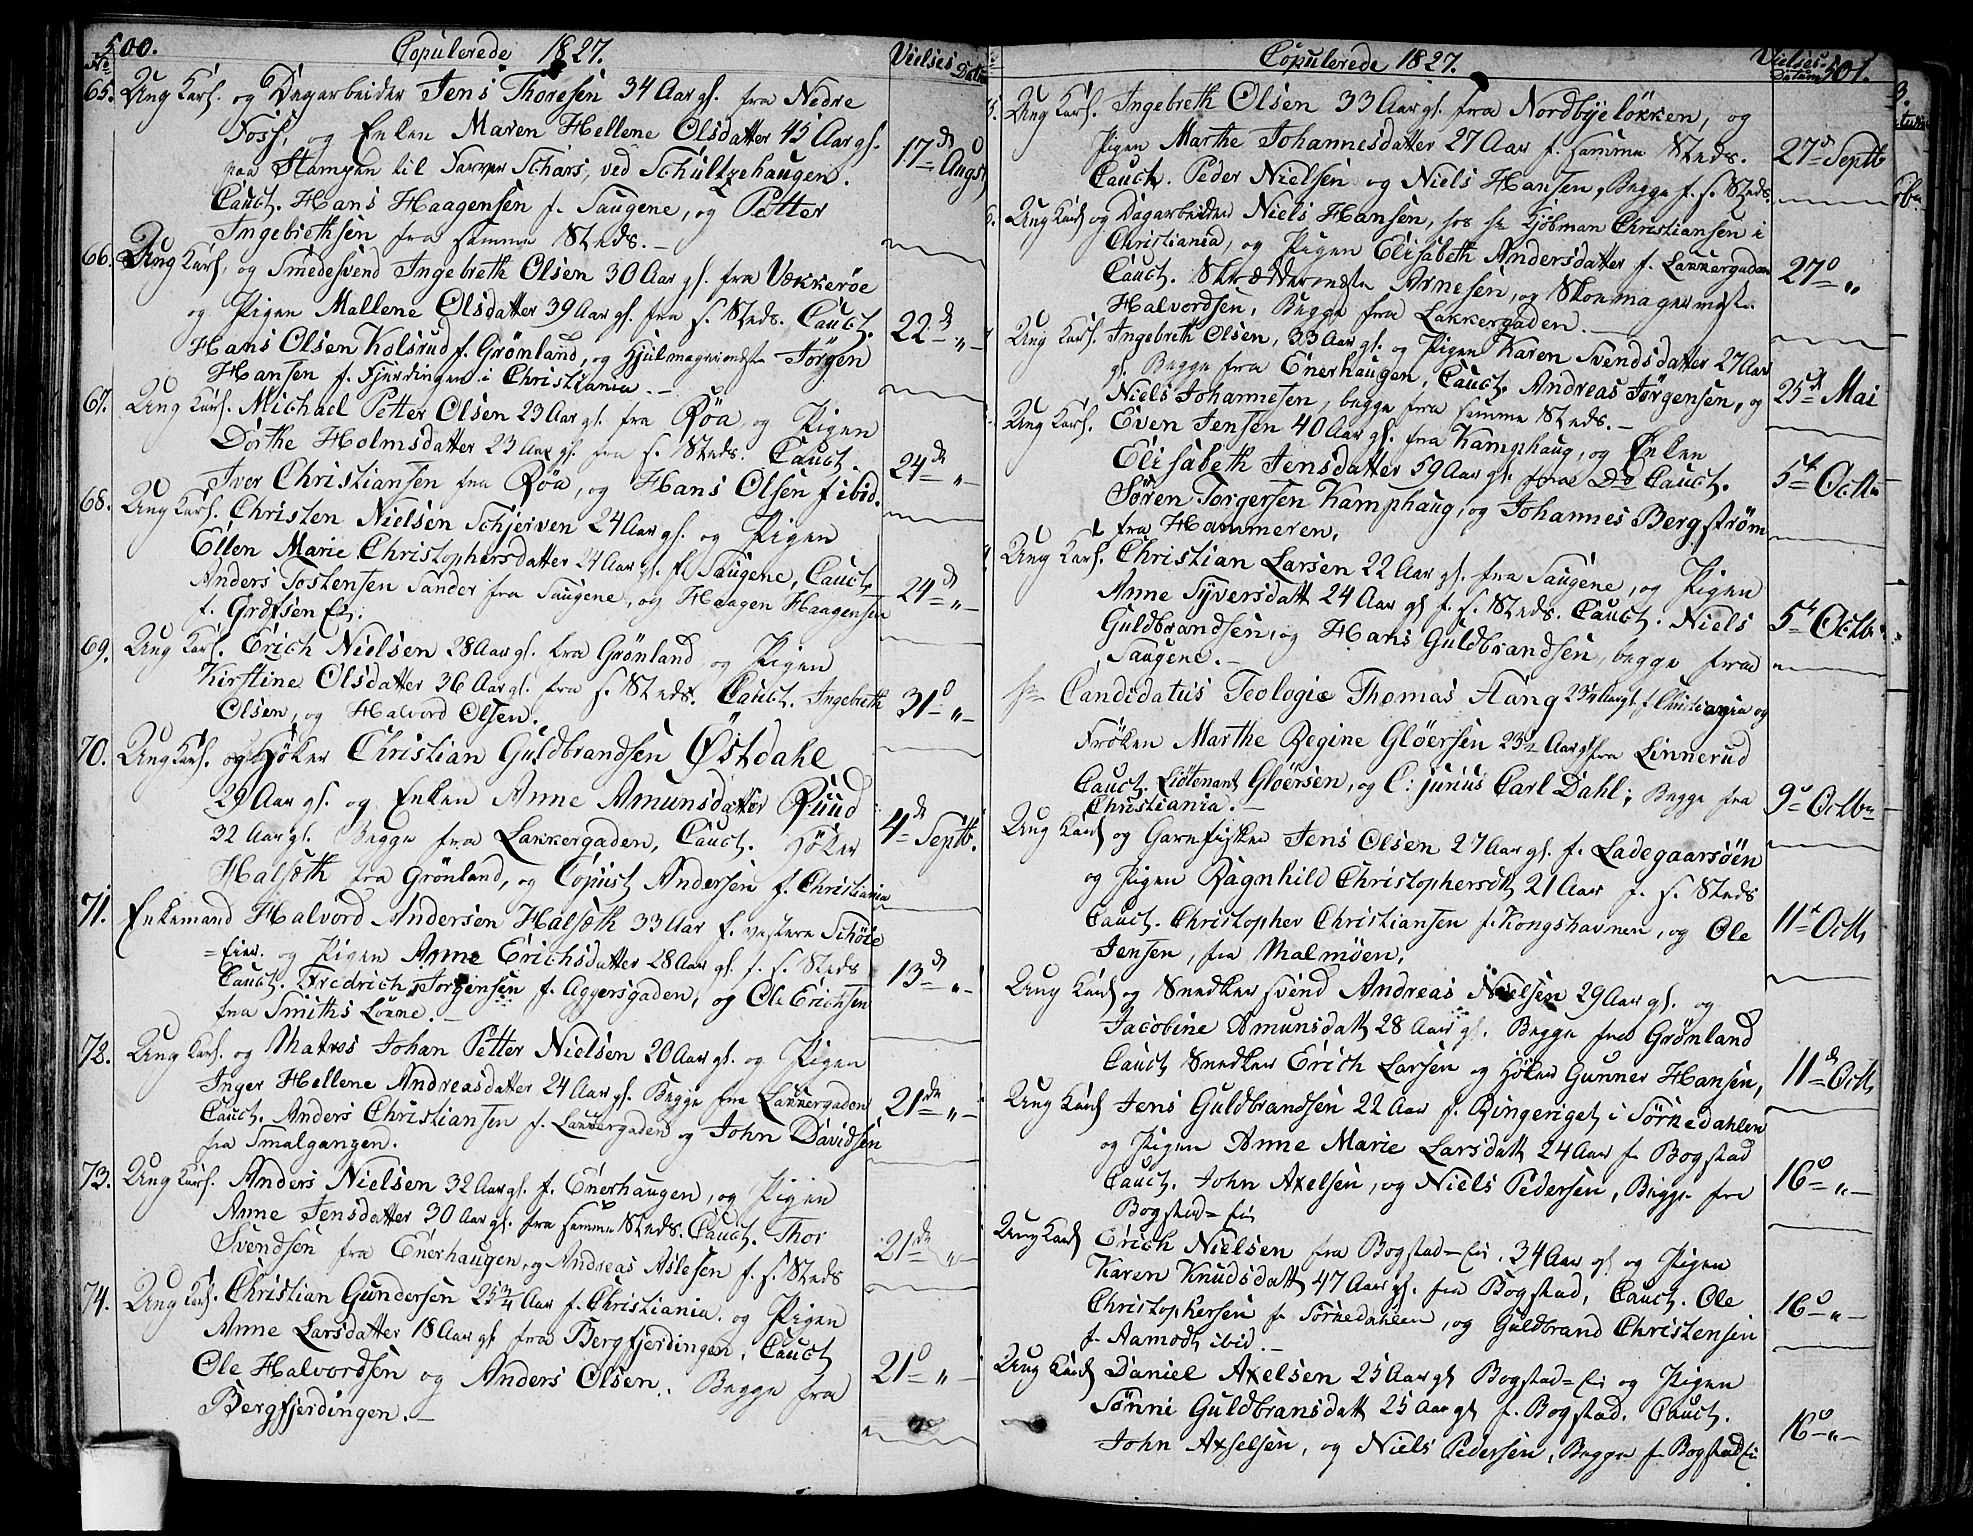 500.
Copulerede 1827.
Vielses Datum
No
65. Ung Karl. og Dagarbeider Jens Thoresen 34 Aar gl. fra Nedre
Foss, og Enken Maren Hellene Olsdatter 45 Aar gl.
paa Stampen til Farver Schars, ved Schultzehaugen.
Cauct. Hans Haagensen f. Saugene, og Petter
Ingebrethsen fra samme Steds.
17de Augst
66. Ung Karl. og Smedesvend Ingebreth Olsen 30 Aar gl. fra Vækkerøe
og Pigen Mallene Olsdatter 39 Aar gl. fra s. Steds. Cauct.
Hans Olsen Kolsrud f. Grønland, og Hjulmagersvend Jørgen
Hansen f. Fjerdingen i Christiania.
22de "
67. Ung Karl. Michael Petter Olsen 23 Aar gl. fra Røa, og Pigen
Dorthe Holmsdatter 23 Aar gl. fra s. Steds. Cauct.
Iver Christiansen fra Røa, og Hans Olsen f ibid.
24de "
68. Ung Karl. Christen Nielsen Schjerven 24 Aar gl. og Pigen
Ellen Marie Christophersdatter 24 Aar gl. f. Saugene, Cauct.
Anders Tostensen Sander fra Saugene, og Haagen Haagensen
f. Grefsen Ei.
24de "
69. Ung Karl. Erich Nielsen 28 Aar gl. fra Grønland og Pigen
Kirstine Olsdatter 36 Aar gl. fra s. Steds. Cauct. Ingebreth
Olsen, og Halvord Olsen.
31 "
70. Ung Karl. og Høker Christian Guldbrandsen Østdahl
29 Aar gl. og Enken Anne Amunsdatter Ruud
32 Aar gl. Begge fra Lakkergaden, Cauct. Høker
Halseth fra Grønland, og Copiist Andersen f. Christiania
4de Septb.
71. Enkemand Halvord Andersen Halseth 33 Aar f. vestere Schøie
=Eier. og Pigen Anne Erichsdatter 28 Aar gl. f. s. Steds
Cauct. Fredrich Jørgensen f. Aggersgaden, og Ole Erichsen
fra Smiths Lønne.
13de "
72. Ung Karl. og Matros Johan Petter Nielsen 20 Aar gl. og Pigen
Inger Hellene Andreasdatter 24 Aar gl. Begge fra Lakkergaden
Cauct. Anders Christiansen f. Lakkergaden og John Davidsen
fra Smalgangen.
21de "
73. Ung Karl. Anders Nielsen 32 Aar gl. f. Enerhaugen, og Pigen
Anne Jensdatter 30 Aar gl. fra samme Steds. Cauct. Thor
Svendsen fra Enerhaugen, og Andreas Aslesen f. s. Steds
21de "
74. Ung Karl. Christian Gundersen 25 3/4 Aar f. Christiania. og Pigen
Anne Larsdatter 18 Aar gl. fra Bergfjerdingen, Cauct
Ole Halvordsen og Anders Olsen. Begge fra
Bergfjerdingen.
21 "
Copulerede 1827.
Vielses Datum
501.
5. Ung Karl. Ingebreth Olsen 33 Aar gl. fra Nordbyeløkken, og
Pigen Marthe Johannesdatter 27 Aar f. samme Steds.
Cauct. Peder Nielsen og Niels Hansen, Begge f. s. Steds.
27de Septb
6. Ung Karl og Dagarbeider Niels Hansen, hos Hr Kjøbman Christiansen i
Christiania, og Pigen Elisabeth Andersdatter f. Lakkergaden
Cauct. Skrædder Arnesen, og Skomager
Halvordsen, Begge fra Lakkergaden.
27 "
Ung Karl. Ingebreth Olsen, 33 Aar gl. og Pigen Karen Svendsdatter 27 Aar
gl. Begge fra Enerhaugen, Cauct. Andreas Jørgensen, og
Niels Johannesen, begge fra samme Steds.
25de Mai
Ung Karl. Even Jensen 40 Aar gl. fra Kamphaug, og Enken
Elisabeth Jensdatter 59 Aar gl. fra Do Cauct.
Søren Torgersen Kamphaug, og Johannes Bergstrøm
fra Hammeren.
5te Octb
Ung Karl. Christian Larsen 22 Aar gl. fra Saugene, og Pigen
Anne Syversdatt 24 Aar gl f. s. Steds. Cauct. Niels
Guldbrandsen, og Hans Guldbrandsen, begge fra
Saugene.
5te Octb
Hr Candidatus Teologie Thomas Stang 23 1/4 Aar gl. f Christiania og
Frøken Marthe Regine Gløersen 23 1/2 Aar gl fra Linnerud
Cauct. Liøtenant Gløersen, og C: junius Carl Dahl; Begge fra
Christiania.
9 Octbr
Ung Karl og Garnfisker Jens Olsen 27 Aar gl. f. Ladegaarsøen
og Pigen Ragnhild Christophersdt 21 Aar f. s. Steds
Cauct. Christopher Christiansen f. Kongshavnen, og Ole
Jensen, fra Malmøen.
11te Octb
Ung Karl og Snedker svend Andreas Nielsen 29 Aar gl. og
Jacobine Amunsdatt 28 Aar gl. Begge fra Grønland
Cauct Snedker Erich Larsen og Høker Gunner Hansen,
11te Octb
Ung Karl Jens Guldbrandsen 22 Aar f. Ringeriget i Sørkedahlen
og Pigen Anne Marie Larsdatt 24 Aar f. Bogstad
Cauct. John Axelsen, og Niels Pedersen, Begge fra
Bogstad=Ei
16 "
Ung Karl Erich Nielsen fra Bogstad-Ei. 34 Aar gl og Pigen
Karen Knudsdatt 47 Aar gl. fra Bogstad, Cauct. Ole
Christophersen f. Sørkedahlen, og Guldbrand Christensen
f. Aamodt ibid.
16 "
Ung Karl Daniel Axelsen 25 Aar gl Bogstad=Ei og Pigen
Sønni Guldbransdatt 25 Aar gl f. Bogstad. Cauct.
John Axselsen, og Niels Pedersen, Begge f. Bogstad Ei
16 "